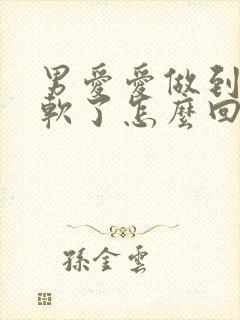 男愛愛做到
軟了怎麼回
孫金雲